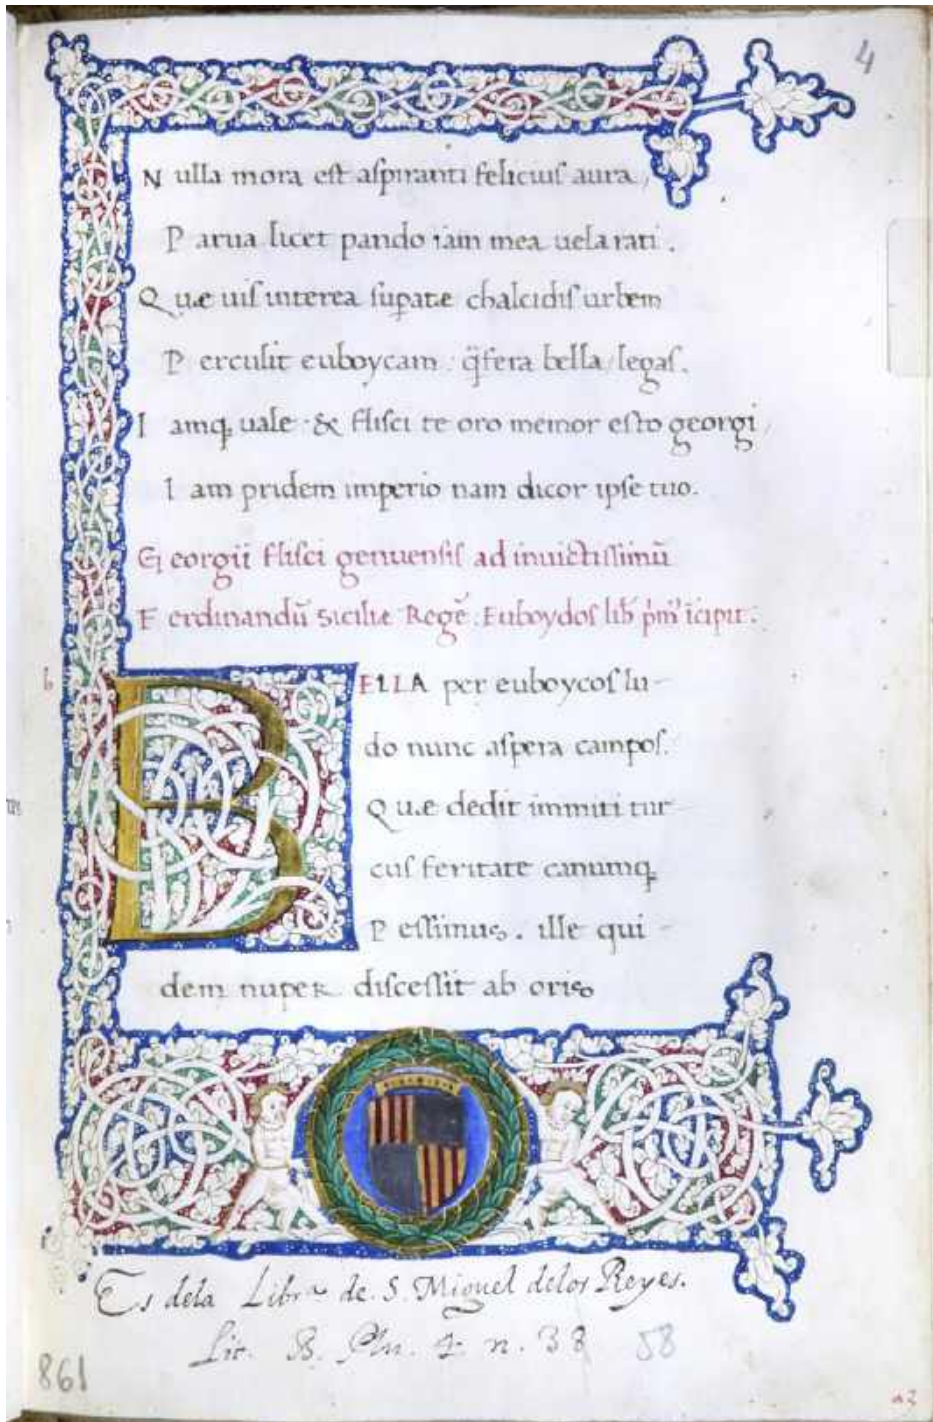 4
N ulla mora est aspiranti felicius aura,
P arua licet pando iam mea uela rati.
Q uæ uis interea supatæ chalcidis urbem
P erculit euboycam: q̄ fera bella legas.
I amq; uale & flisci te oro memor esto georgi,
I am pridem imperio nam dicor ipse tuo.
G eorgii flisci genuensis ad inuictissimū
F erdinandū Siciliæ Regē: Euboydos lib' pͥm' īcipit.
b
BELLA per euboycos lu-
do nunc aspera campos.
Q uæ dedit immiti tur-
cus feritate canumq;
P essimus. ille qui-
dem nuper discessit ab oris
Es dela Libra de. S. Miguel delos Reyes.
Lit. B. Plu. 4. n. 38 58
861
a2